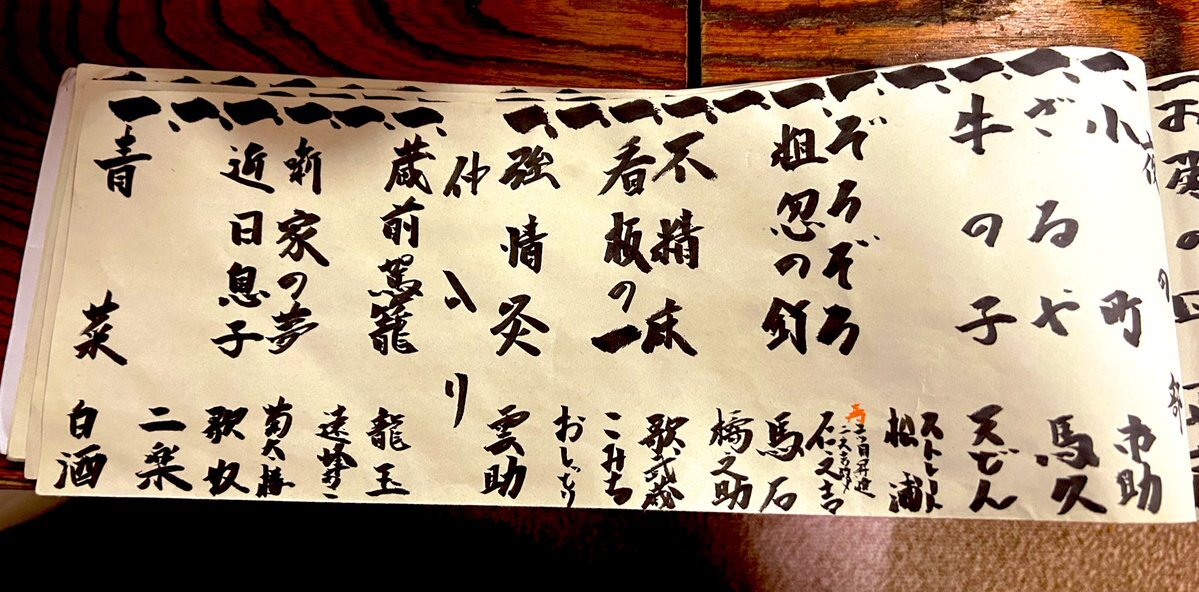 一、小町 市助
一、ざるや 馬久
一、牛の子 天どん
一、ストレート松浦
一、ぞろぞろ
一、粗忽の釘 馬石
一、橘之助
一、不精床 歌武蔵
一、看板の一 こみち
一、おしどり
一、強情灸 雲助
仲入り
一、蔵前駕籠 龍玉
一、遠峰あこ
一、噺家の夢 菊太楼
一、近日息子 歌奴
一、二楽
一、青菜 白酒